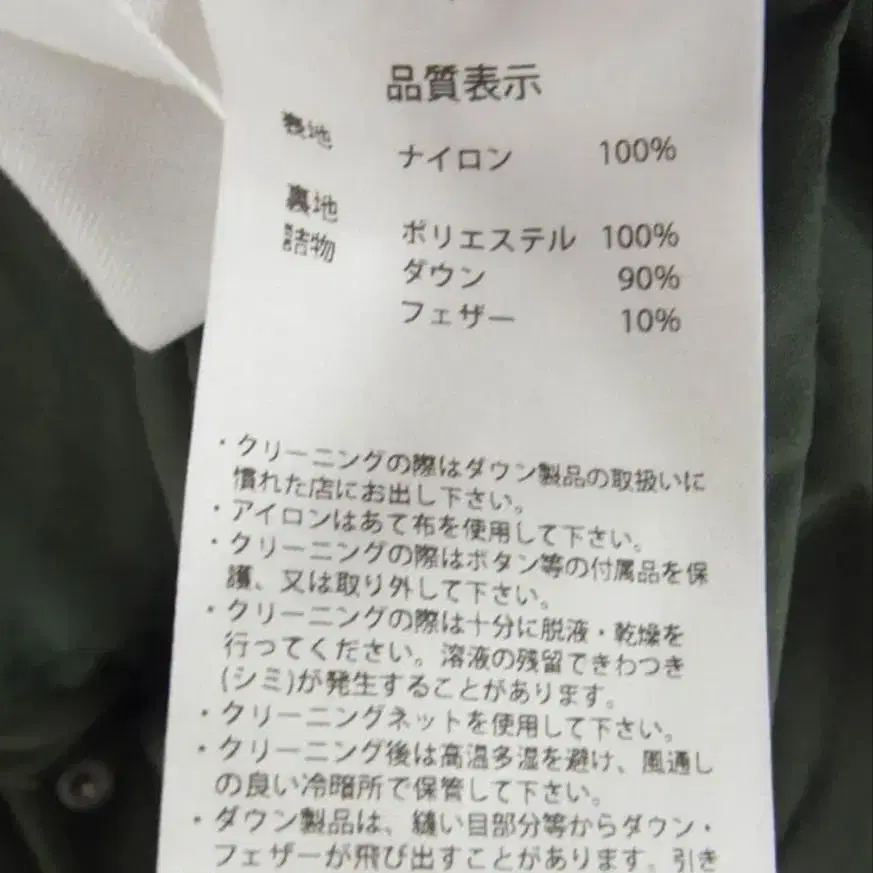 品質表示
表地
ナイロン 100%
裏地
ポリエステル 100%
詰物
ダウン 90%
フェザー 10%
・クリーニングの際はダウン製品の取扱いに
慣れた店にお出し下さい。
・アイロンはあて布を使用して下さい。
・クリーニングの際はボタン等の付属品を保
護、又は取り外して下さい。
・クリーニングの際は十分に脱液・乾燥を
行ってください。溶液の残留できわつき
(シミ)が発生することがあります。
・クリーニングネットを使用して下さい。
・クリーニング後は高温多湿を避け、風通し
の良い冷暗所で保管して下さい。
・ダウン製品は、縫い目部分等からダウン・
フェザーが飛び出すことがあります。引き